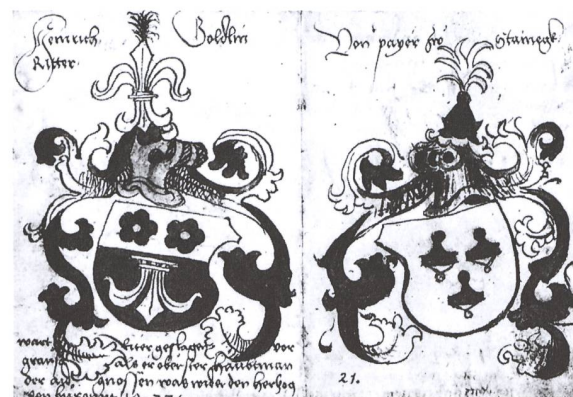 Heinrich Göldlin
Ritter.
Von payer zw Stainegk
wart Riter geslagen vor
gransen als er oberster haubtman
der aid gnossen was wider den herhog
von burgunt
21.